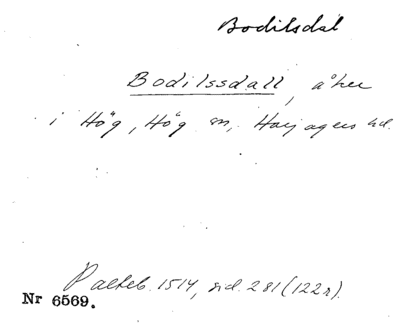 Bodilsdal
Bodilssdall, åker
i Hög, Hög sn, Harjagers hd.
Palteb. 1514, sid. 281 (122r).
Nr 6569.